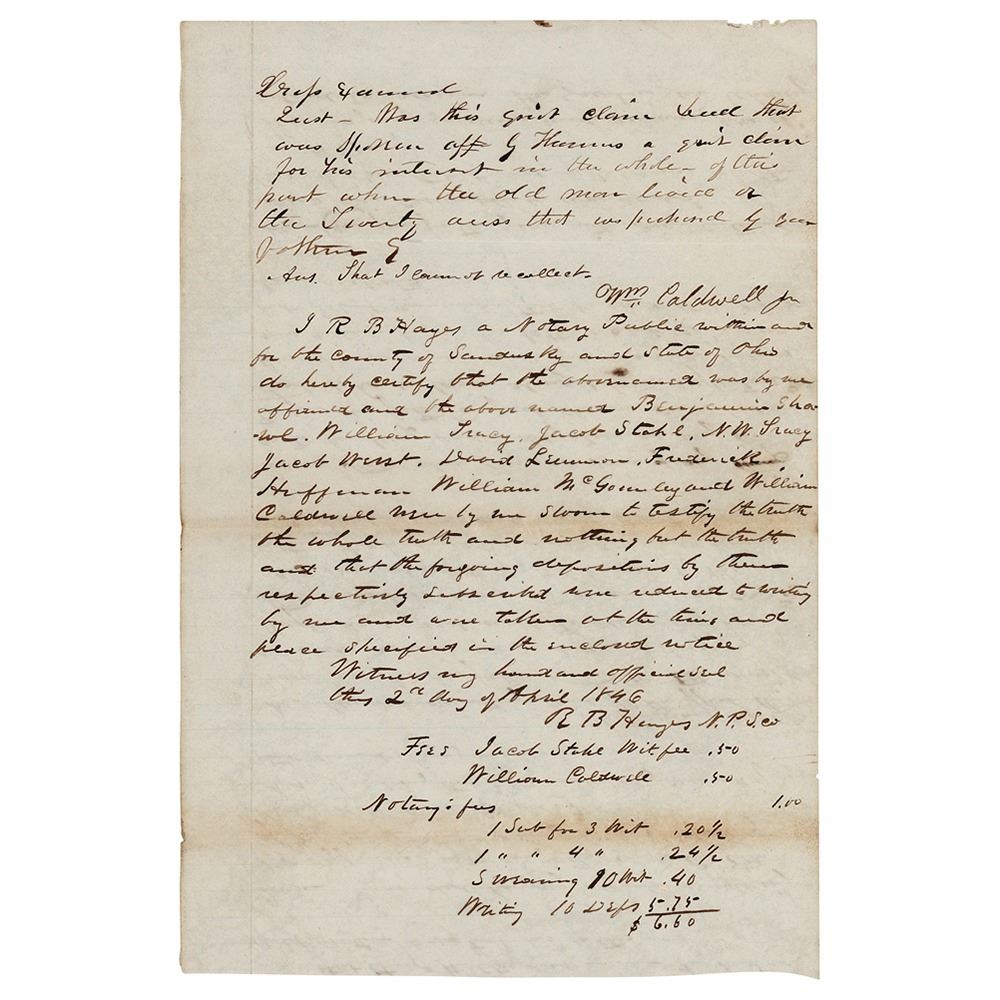 Cross Examined
Quest - Was this quit claim deed that
was spoken off by Hanns a quit claim
for his interest in the whole of this
part when the old man lived or
the Twenty acres that was purchased by your
father G
Ans. That I cannot recollect.
Wm Caldwell Jr
I R B Hayes a Notary Public within and
for the County of Sandusky and State of Ohio
do hereby certify that the abovenamed was by me
affirmed and the above named Benjamin Sho-
wl. William Tracy, Jacob Stahl, N.W. Tracy
Jacob Werst. David Lemmon, Frederick
Huffman William McGormley and William
Caldwell were by me sworn to testify the truth
the whole truth and nothing but the truth
and that the forgoing depositions by them
respectively subscribed were reduced to writing
by me and were taken at the time and
place specified in the enclosed notice
Witness my hand and official seal
this 2nd day of April 1846
R B Hayes N.P.S.co
Fees Jacob Stahl Wit fee .50
William Caldwell .50
Notary's fees 1.00
1 Sub for 3 Wit .20½
1 " " 4 " .24½
Swearing 10 Wit .40
Writing 10 Deps 5.75
$ 6.60